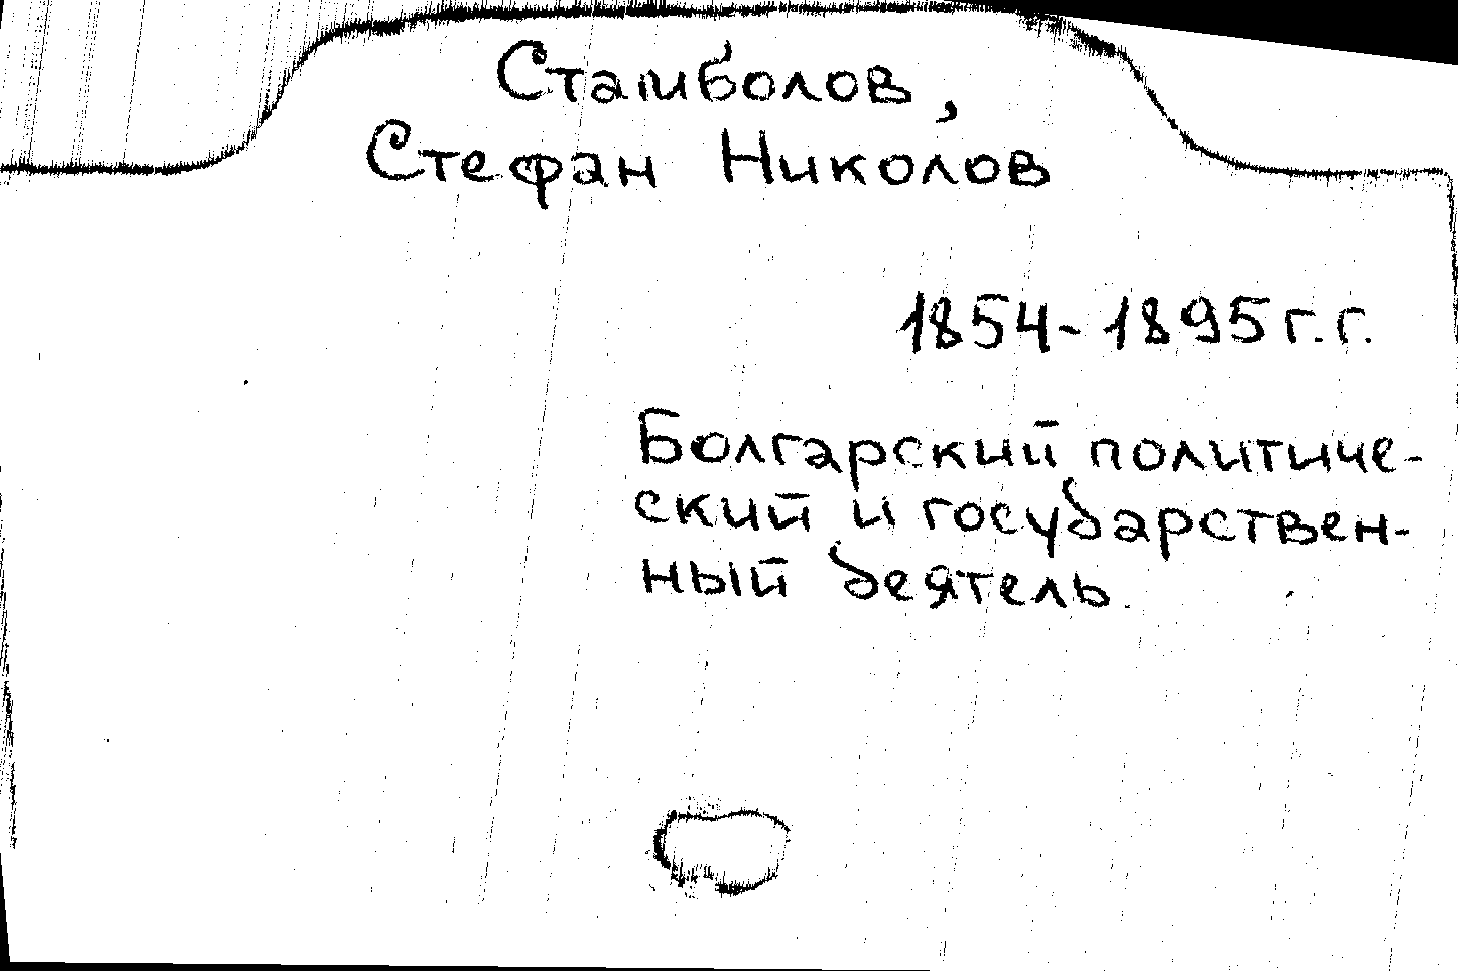 Стамболов,
Стефан Николов
1854-1895 г.г.
Болгарский политиче-
ский и государствен-
ный деятель.